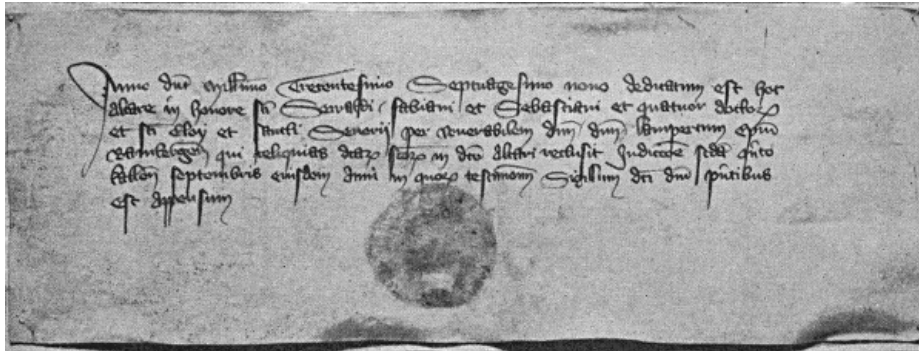 Anno dni millimo Trecentesimo Septuagesimo nono dedicatum est hoc
Altare in honore sti Sewaldi fabiani et Sebastiani et quatuor doctor
et sti Eloy et sancti Seuerii per venerabilem dnm dnm lampertum epm
Bambergen qui reliquias dcar scor in dco Altari reclusit Indictone scda qnto
kallen Septembris eiusdem anni in quor testimonm Sigillum dci dni pntibus
est appensum